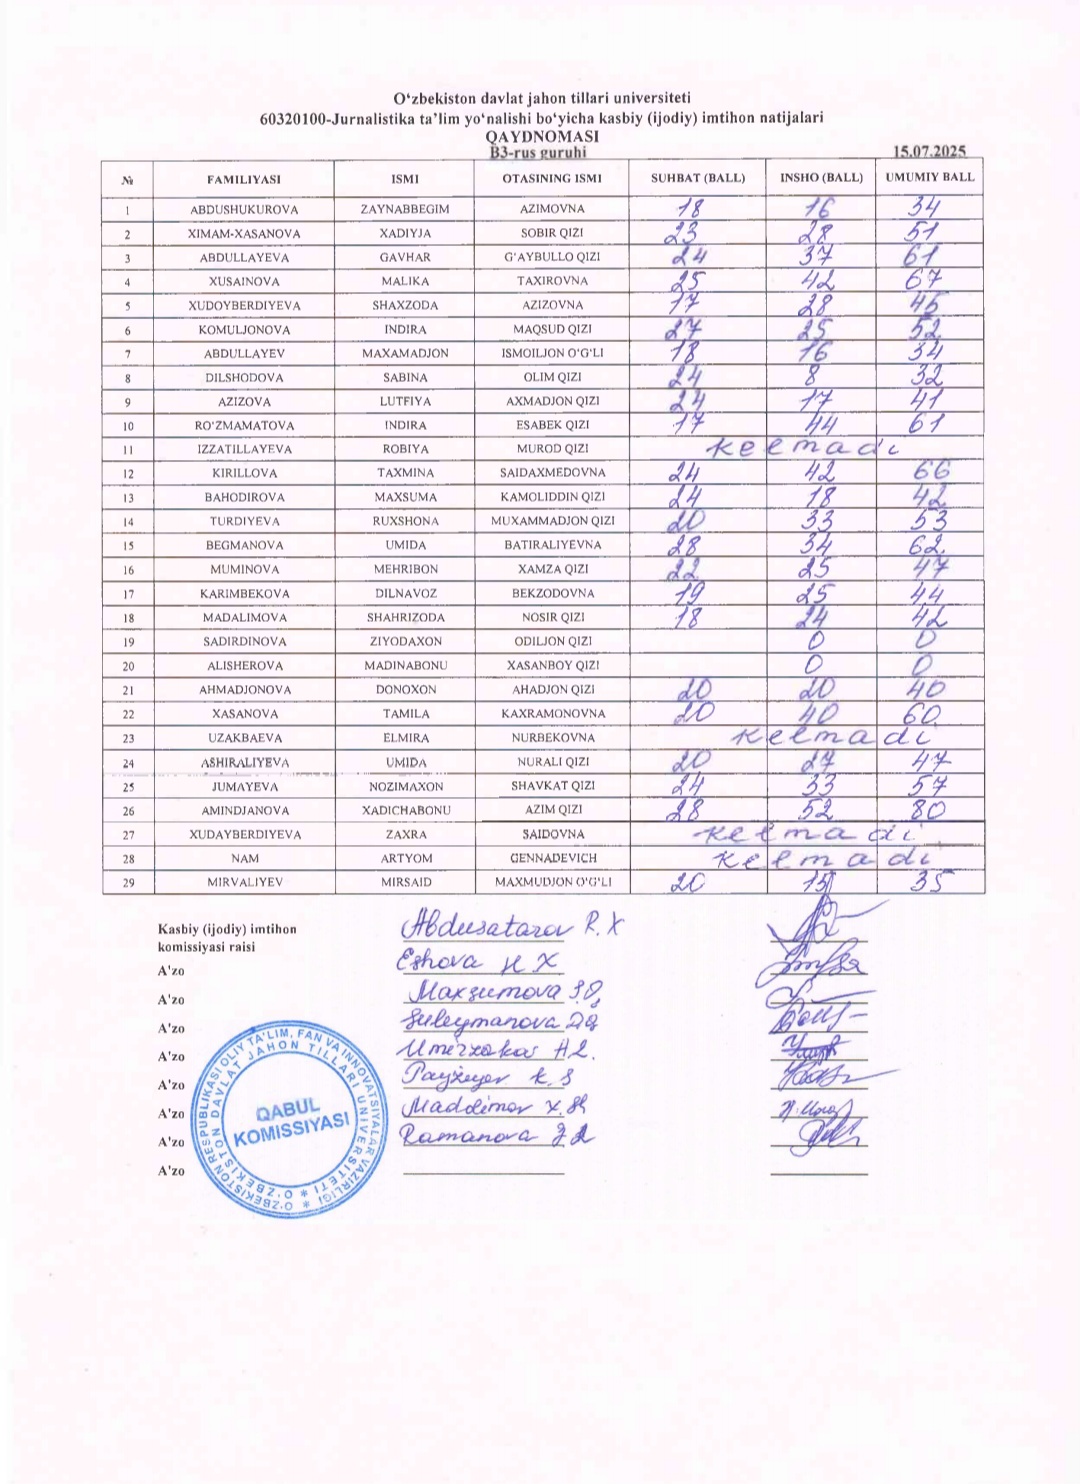 O‘zbekiston davlat jahon tillari universiteti
60320100-Jurnalistika ta’lim yo‘nalishi bo‘yicha kasbiy (ijodiy) imtihon natijalari
QAYDNOMASI
B3-rus guruhi 15.07.2025
№ FAMILIYASI ISMI OTASINING ISMI SUHBAT (BALL) INSHO (BALL) UMUMIY BALL
1 ABDUSHUKUROVA ZAYNABBEGIM AZIMOVNA 18 16 34
2 XIMAM-XASANOVA XADIYJA SOBIR QIZI 23 28 51
3 ABDULLAYEVA GAVHAR G'AYBULLO QIZI 24 37 61
4 XUSAINOVA MALIKA TAXIROVNA 25 42 67
5 XUDOYBERDIYEVA SHAXZODA AZIZOVNA 17 28 45
6 KOMULJONOVA INDIRA MAQSUD QIZI 27 25 52
7 ABDULLAYEV MAXAMADJON ISMOILJON O'G'LI 18 16 34
8 DILSHODOVA SABINA OLIM QIZI 24 8 32
9 AZIZOVA LUTFIYA AXMADJON QIZI 24 17 41
10 RO'ZMAMATOVA INDIRA ESABEK QIZI 17 44 61
11 IZZATILLAYEVA ROBIYA MUROD QIZI kelmadi
12 KIRILLOVA TAXMINA SAIDAXMEDOVNA 24 42 66
13 BAHODIROVA MAXSUMA KAMOLIDDIN QIZI 24 18 42
14 TURDIYEVA RUXSHONA MUXAMMADJON QIZI 20 33 53
15 BEGMANOVA UMIDA BATIRALIYEVNA 28 34 62.
16 MUMINOVA MEHRIBON XAMZA QIZI 22 25 47
17 KARIMBEKOVA DILNAVOZ BEKZODOVNA 19 25 44
18 MADALIMOVA SHAHRIZODA NOSIR QIZI 18 24 42
19 SADIRDINOVA ZIYODAXON ODILJON QIZI 0 0
20 ALISHEROVA MADINABONU XASANBOY QIZI 0 0
21 AHMADJONOVA DONOXON AHADJON QIZI 20 20 40
22 XASANOVA TAMILA KAXRAMONOVNA 20 40 60
23 UZAKBAEVA ELMIRA NURBEKOVNA kelmadi
24 ASHIRALIYEVA UMIDA NURALI QIZI 20 27 47
25 JUMAYEVA NOZIMAXON SHAVKAT QIZI 24 33 57
26 AMINDJANOVA XADICHABONU AZIM QIZI 28 52 80
27 XUDAYBERDIYEVA ZAXRA SAIDOVNA kelmadi
28 NAM ARTYOM GENNADEVICH kelmadi
29 MIRVALIYEV MIRSAID MAXMUDJON O'G'LI 20 15 35
Kasbiy (ijodiy) imtihon
komissiyasi raisi Abdusatarov R.X
A'zo Eshova X
A'zo Maxsumova
A'zo Suleymanova
A'zo
A'zo
A'zo
A'zo Ramanova
A'zo
O‘ZBEKISTON RESPUBLIKASI OLIY TA’LIM, FAN VA INNOVATSIYALAR VAZIRLIGI
O‘ZBEKISTON DAVLAT JAHON TILLARI UNIVERSITETI
QABUL
KOMISSIYASI